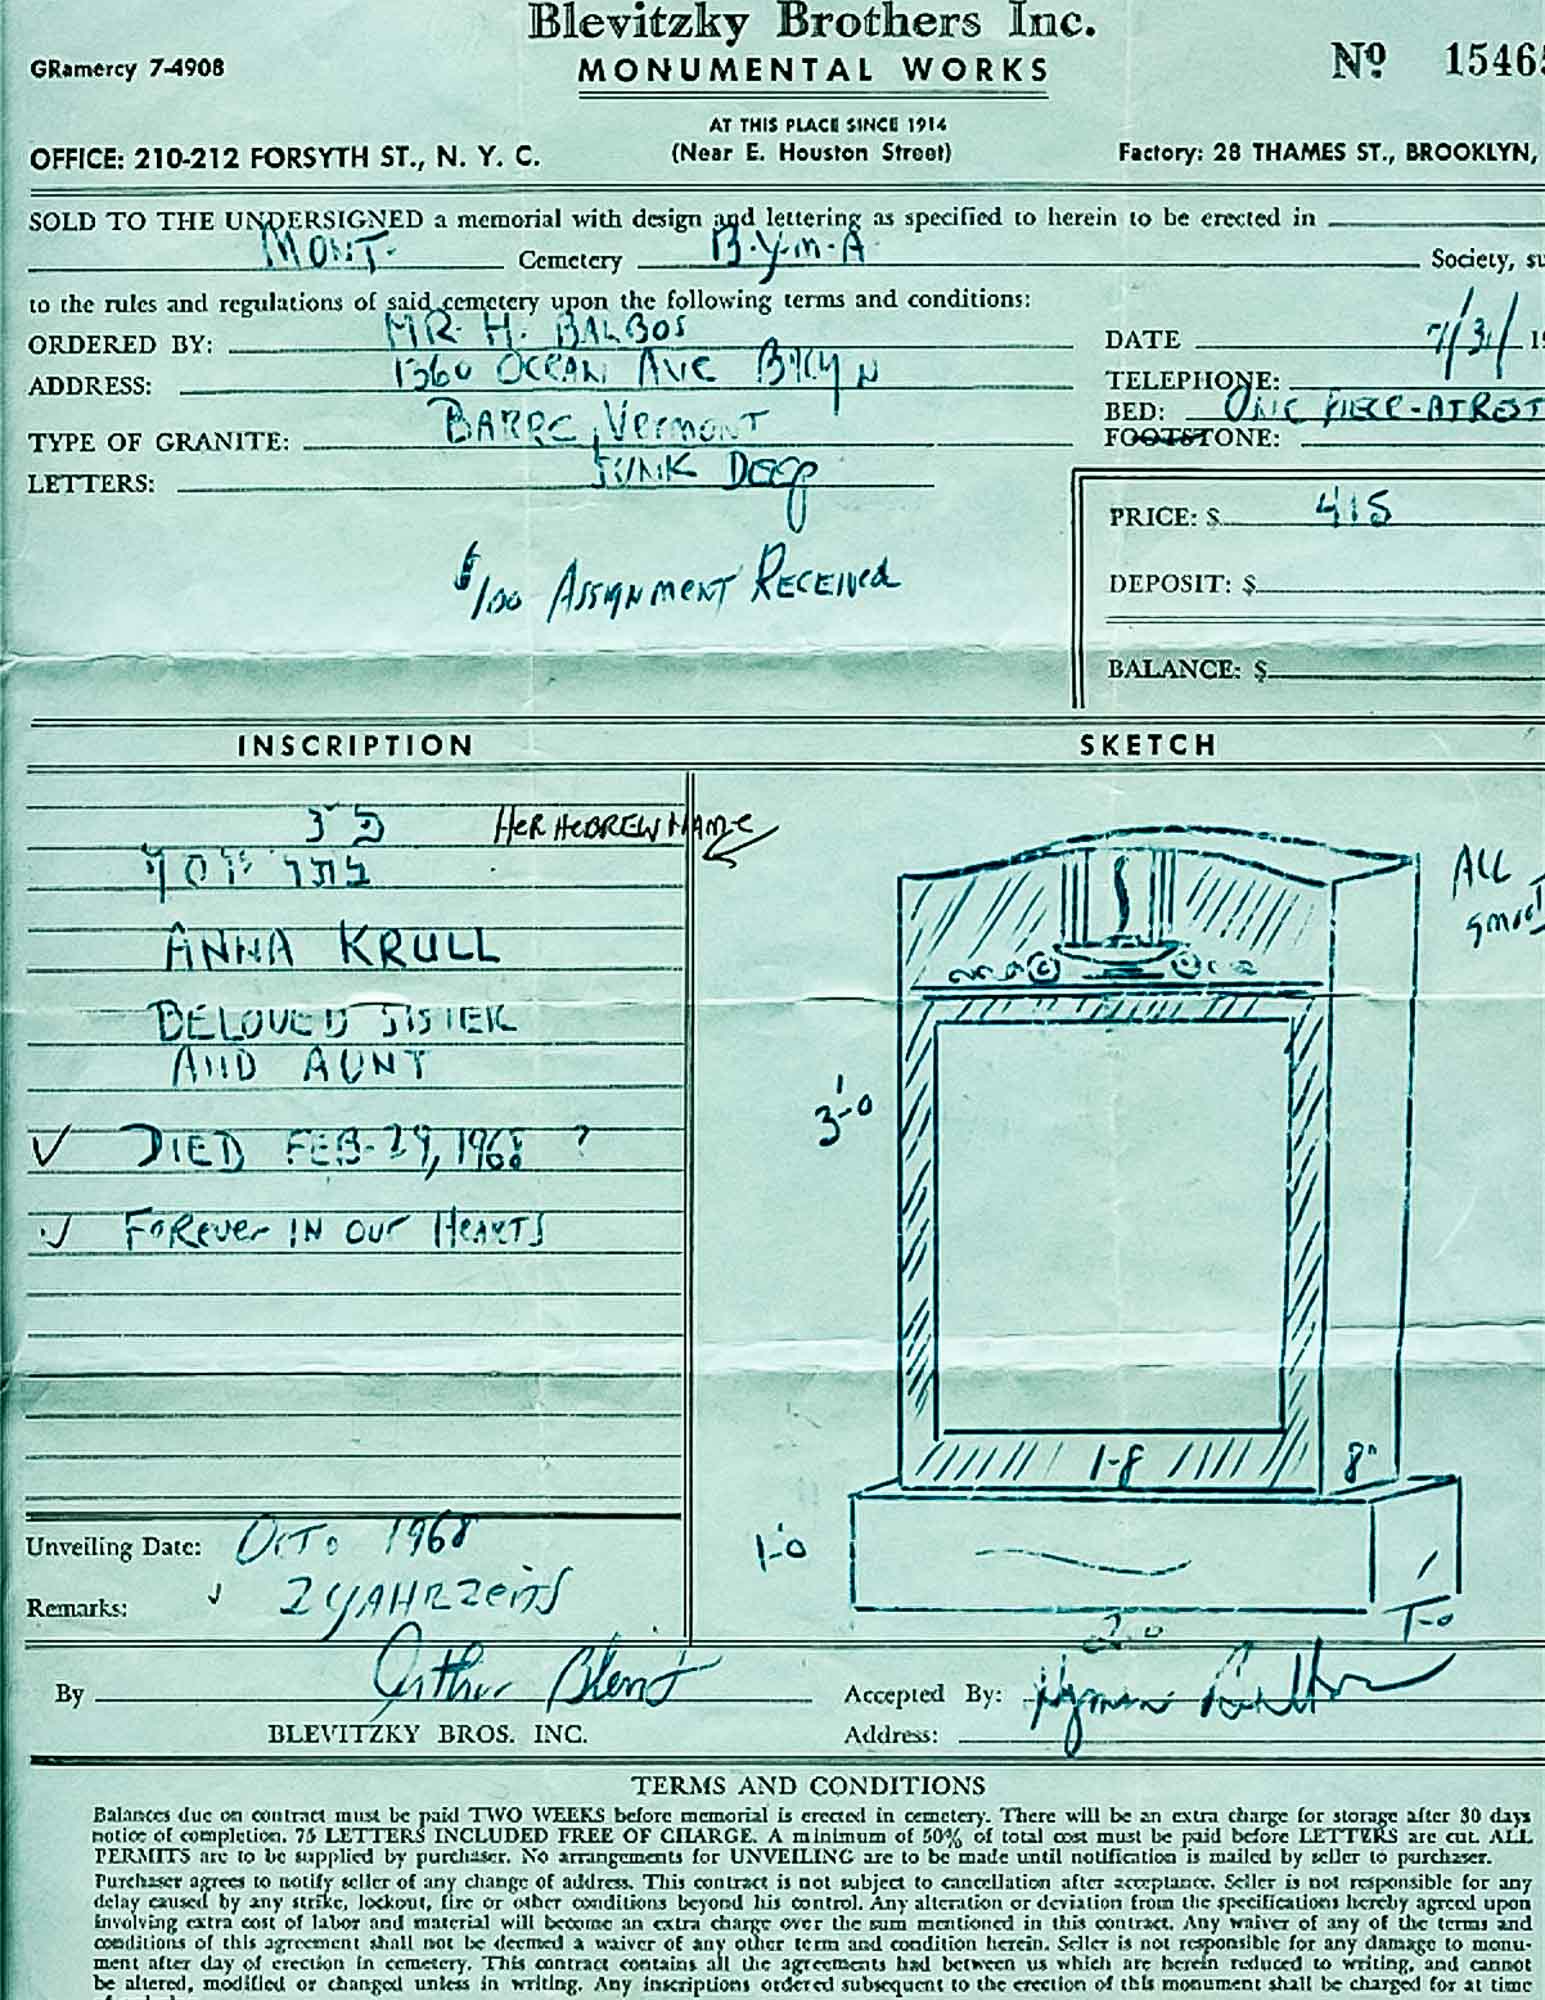 Blevitzky Brothers Inc.
GRamercy 7-4908
MONUMENTAL WORKS
Nº 1546
AT THIS PLACE SINCE 1914
OFFICE: 210-212 FORSYTH ST., N. Y. C.
(Near E. Houston Street)
Factory: 28 THAMES ST., BROOKLYN,
SOLD TO THE UNDERSIGNED a memorial with design and lettering as specified to herein to be erected in
MONT. Cemetery B.Y.M.A. Society, su
to the rules and regulations of said cemetery upon the following terms and conditions:
ORDERED BY: MR. H. BALBOS
DATE 7/31/ 19
ADDRESS: 1360 OCEAN AVE BKLYN
TELEPHONE:
BED: ONE PIECE-ATREST
TYPE OF GRANITE: BARRE, VERMONT
FOOTSTONE:
LETTERS: SUNK DEEP
PRICE: $ 415
$100 ASSIGNMENT RECEIVED
DEPOSIT: $
BALANCE: $
INSCRIPTION
SKETCH
פ נ
HER HEBREW NAME
ANNA KRULL
BELOVED SISTER
AND AUNT
✓ DIED FEB-29, 1968 ?
✓ FOREVER IN OUR HEARTS
ALL
3'-0
1-8
8"
1-0
2-0
1-0
Unveiling Date: OCT 1968
Remarks: ✓ 2 YAHRZEITS
By Arthur
Accepted By: Hyman
BLEVITZKY BROS. INC.
Address:
TERMS AND CONDITIONS
Balances due on contract must be paid TWO WEEKS before memorial is erected in cemetery. There will be an extra charge for storage after 30 days
notice of completion. 75 LETTERS INCLUDED FREE OF CHARGE. A minimum of 50% of total cost must be paid before LETTERS are cut. ALL
PERMITS are to be supplied by purchaser. No arrangements for UNVEILING are to be made until notification is mailed by seller to purchaser.
Purchaser agrees to notify seller of any change of address. This contract is not subject to cancellation after acceptance. Seller is not responsible for any
delay caused by any strike, lockout, fire or other conditions beyond his control. Any alteration or deviation from the specifications hereby agreed upon
involving extra cost of labor and material will become an extra charge over the sum mentioned in this contract. Any waiver of any of the terms and
conditions of this agreement shall not be deemed a waiver of any other term and condition herein. Seller is not responsible for any damage to monu-
ment after day of erection in cemetery. This contract contains all the agreements had between us which are herein reduced to writing, and cannot
be altered, modified or changed unless in writing. Any inscriptions ordered subsequent to the erection of this monument shall be charged for at time